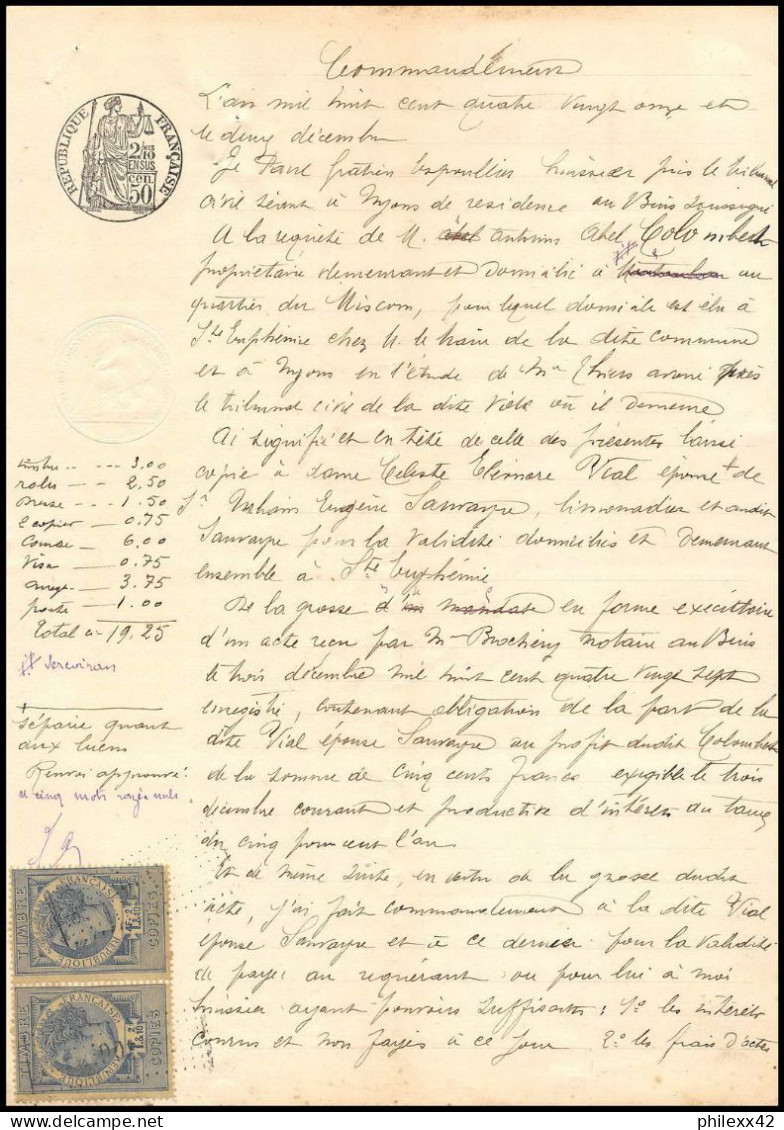 Commandement
L'an mil huit cent quatre vingt onze et
le deux décembre
Je Paul Gratien huissier près le tribunal
civil séant à Nyons de residence au Buis soussigné
A la requête de M. Antonin Abel Colombert
propriétaire demeurant et domicilié à au
quartier du pour lequel domicile est élu à
Ste Euphémie chez M. le Maire de la dite commune
et à Nyons en l'étude de Me Thiers avoué près
le tribunal civil de la dite ville où il demeure
Ai signifié et en tête de celle des présentes laissé
copie à dame Celeste Eléonore Vial épouse de
Sr Eugène Sauvayre, limonadier et audit
Sauvayre pour la validité domiciliés et demeurant
ensemble à Ste Euphémie
De la grosse d'un mandat en forme exécutoire
d'un acte reçu par Me Brochery notaire au Buis
le trois décembre mil huit cent quatre vingt sept
enregistré, contenant obligation de la part de la
dite Vial épouse Sauvayre au profit dudit Colombert
de la somme de cinq cents francs exigible le trois
décembre courant et productive d'intérêts au taux
du cinq pour cent l'an
Et de même suite, en vertu de la grosse dudit
acte, j'ai fait commandement à la dite Vial
épouse Sauvayre et à ce dernier pour la validité
de payer au requérant ou pour lui à moi
huissier ayant pouvoirs suffisants: 1o les intérêts
courus et non payés à ce jour 2o les frais d'actes
REPUBLIQUE FRANÇAISE
2/10 EN SUS
50 cen
timbre 3.00
roles 2.50
1.50
2 copies 0.75
6.00
Visa 0.75
enreg 3.75
poste 1.00
Total 19.25
séparée quant
aux biens
Renvoi approuvé
et cinq mots rayés nuls
TIMBRE
REPUBLIQUE FRANÇAISE
COPIES
TIMBRE
REPUBLIQUE FRANÇAISE
COPIES
philexx42
delcampe.net